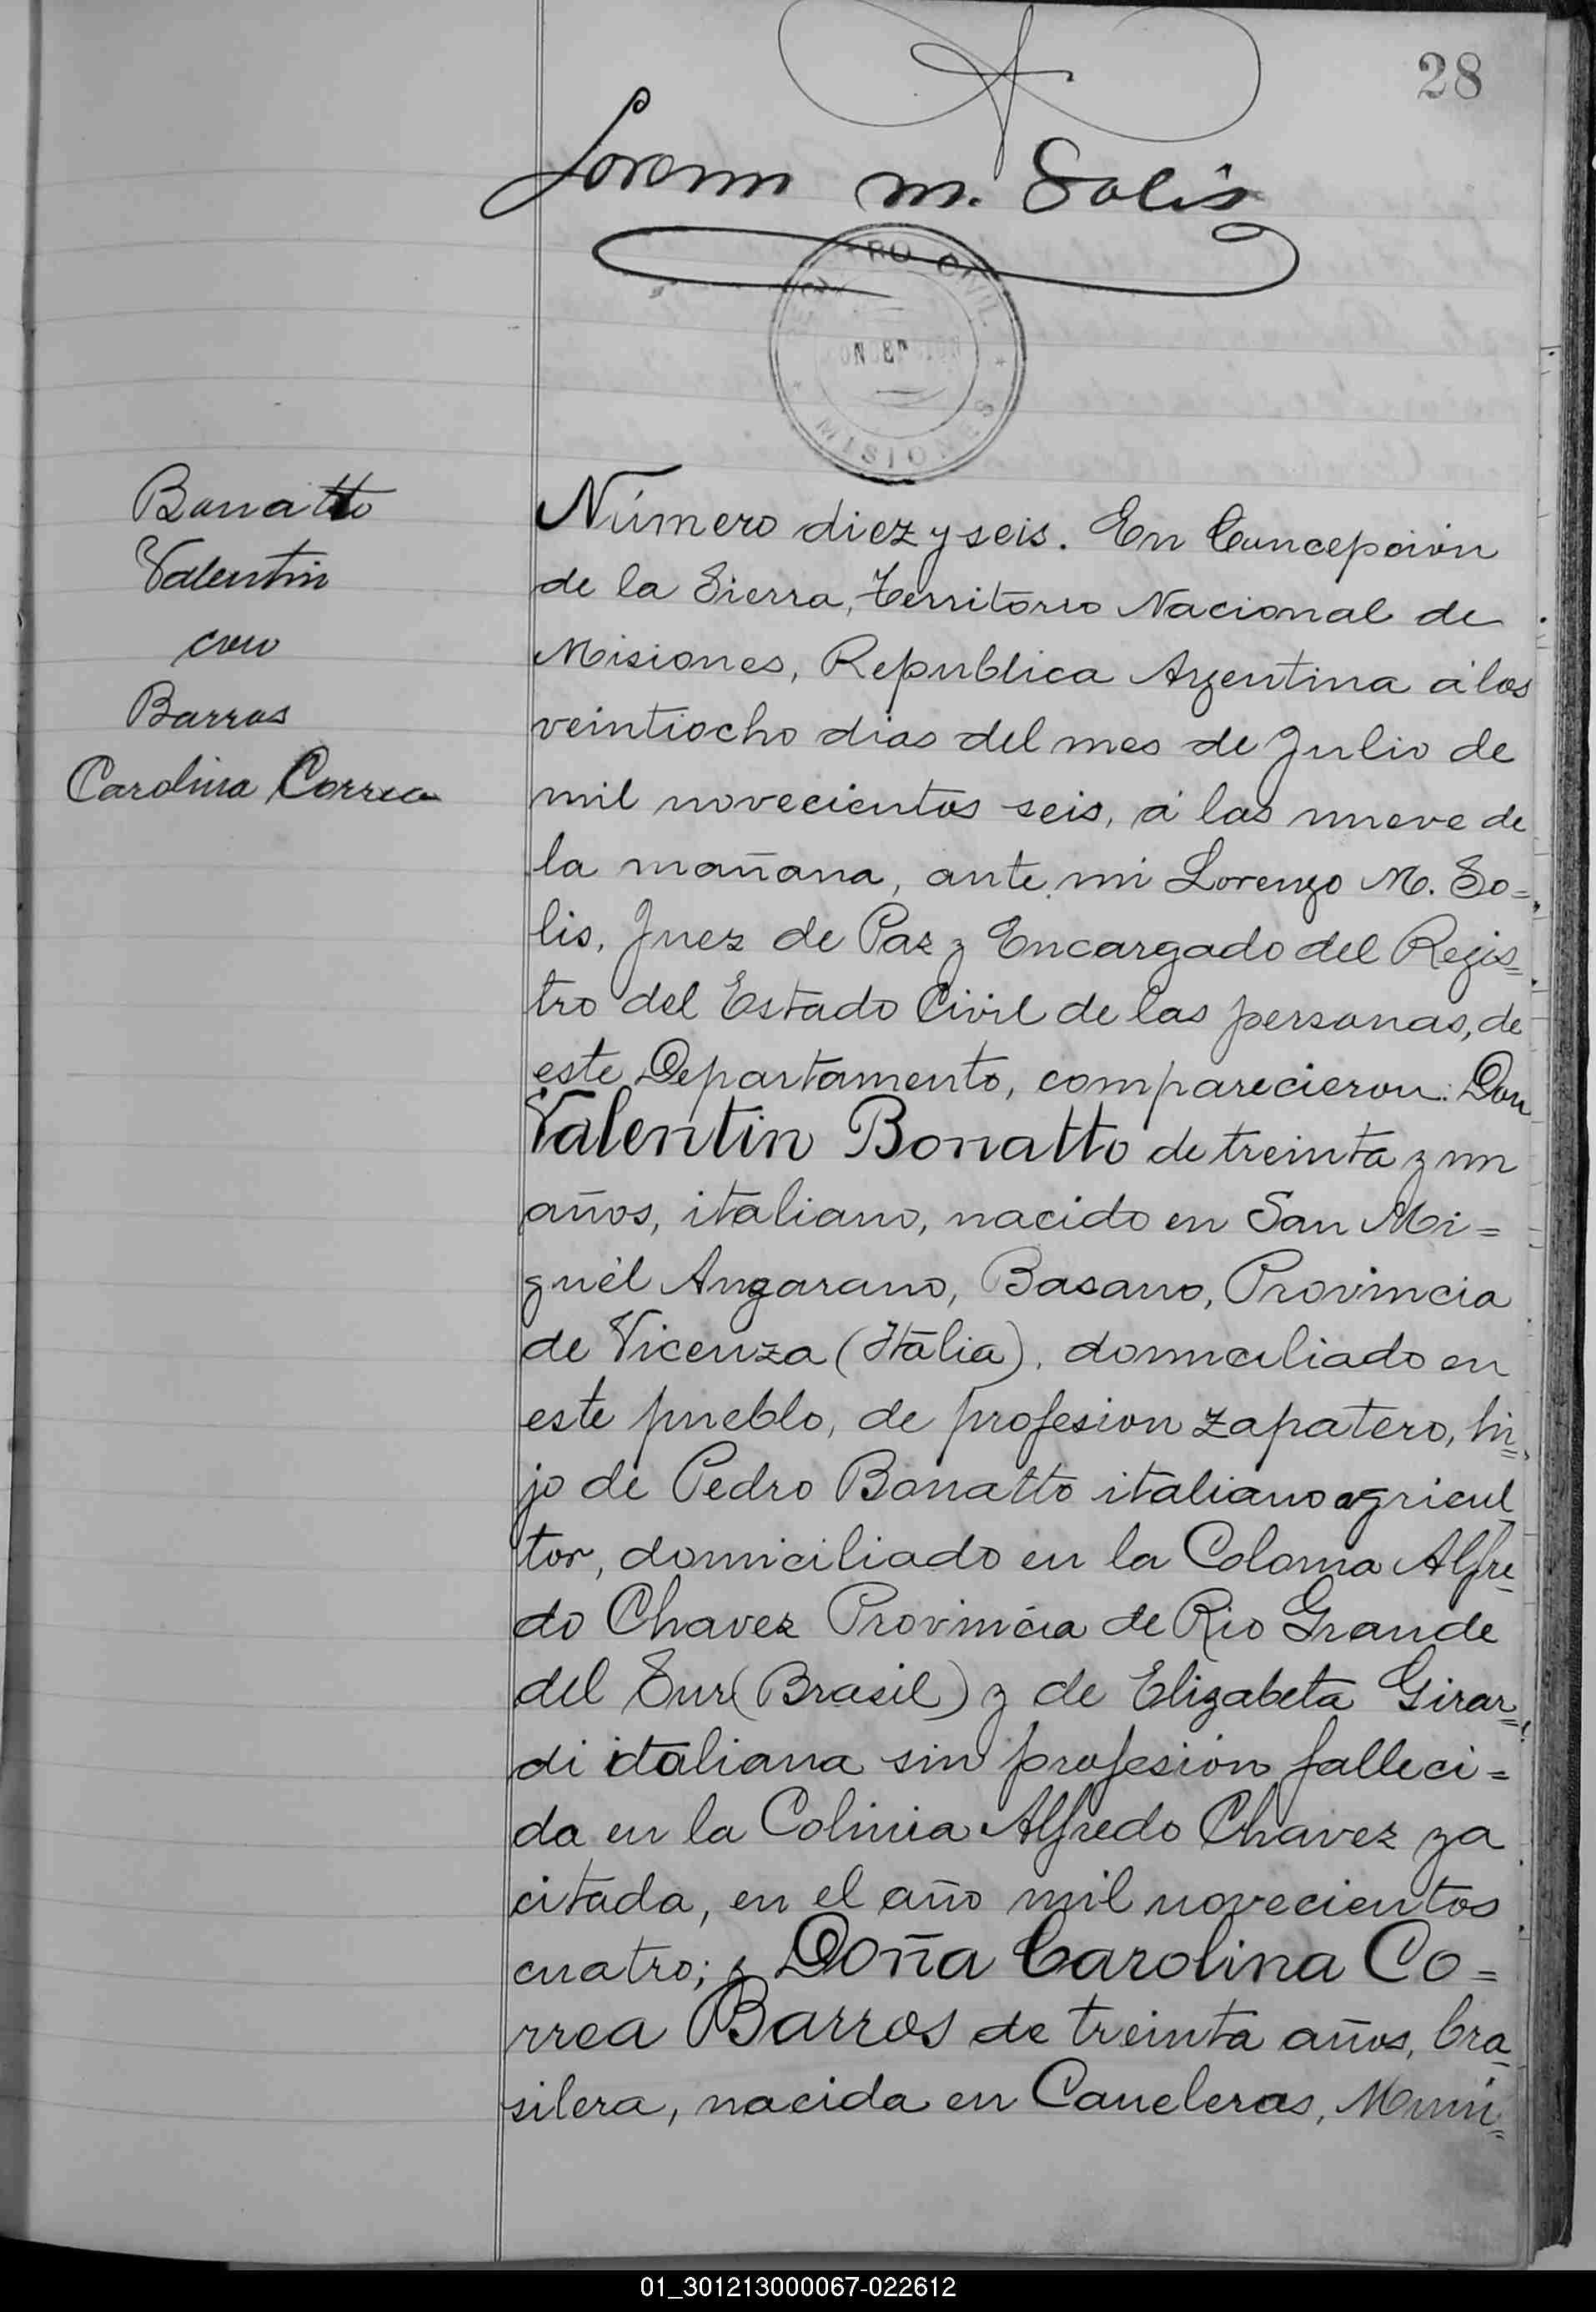 28
Lorenzo M. Solis
REGISTRO CIVIL
CONCEPCION
MISIONES
Bonatto
Valentin
con
Barros
Carolina Correa
Número diez y seis. En Concepción
de la Sierra, Territorio Nacional de
Misiones, Republica Argentina á los
veintiocho dias del mes de Julio de
mil novecientos seis, á las nueve de
la mañana, ante mi Lorenzo M. So=
lis, Juez de Paz y Encargado del Regis=
tro del Estado Civil de las personas, de
este Departamento, comparecieron: Don
Valentin Bonatto de treinta y un
años, italiano, nacido en San Mi=
guél Angarano, Basano, Provincia
de Vicenza (Itália), domiciliado en
este pueblo, de profesion zapatero, hi=
jo de Pedro Bonatto italiano agricul
tor, domiciliado en la Colonia Alfre=
do Chavez Provincia de Rio Grande
del Sur (Brasil) y de Elizabeta Girar=
di italiana sin profesión falleci=
da en la Colinia Alfredo Chavez ya
citada, en el año mil novecientos
cuatro; y Doña Carolina Co=
rrea Barros de treinta años, bra
silera, nacida en Caneleras, Muni=
01_301213000067-022612